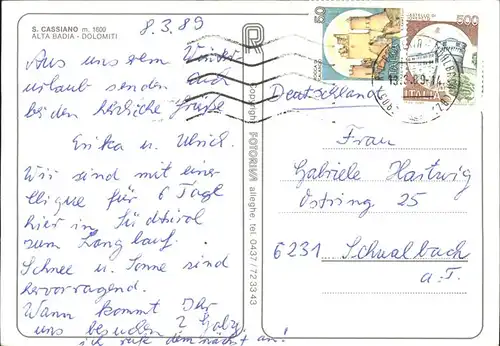 S. CASSIANO m. 1600
ALTA BADIA - DOLOMITI
8.3.89
Aus unserem Winter-
urlaub senden Euch
beiden herzliche Grüße
Erika u. Ulrich.
Wir sind mit einer
Clique für 6 Tage
hier in Südtirol
zum Langlauf.
Schnee u. Sonne sind
hervorragend.
Wann kommt Ihr
uns besuchen? Gaby
ich rufe demnächst an!
copyright FOTORIVA alleghe, tel. 0437/723343
50
500
ITALIA
Deutschland
Frau
Gabriele Hartwig
Ostring 25
6231 Schwalbach
a. T.